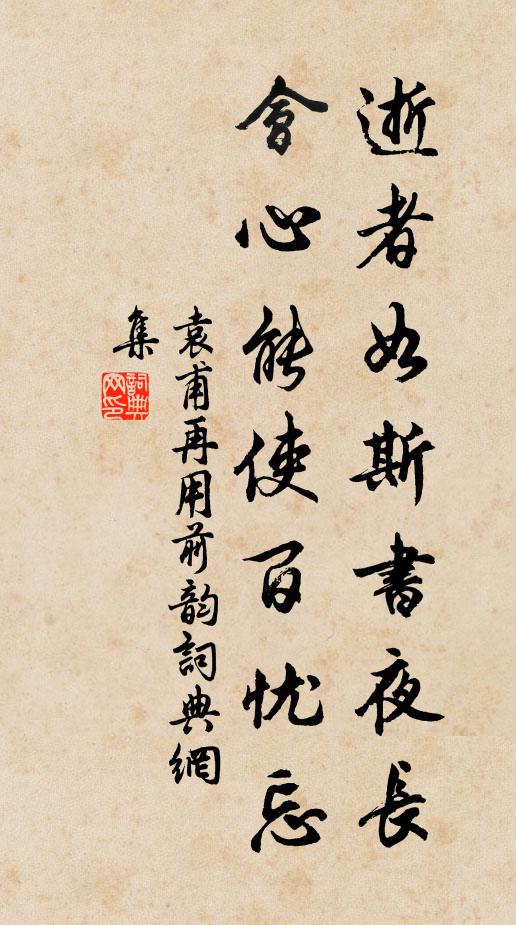 逝者如斯書夜長
會心能使百忧忘
袁甫再用前韵詞典網
集
詞典网印